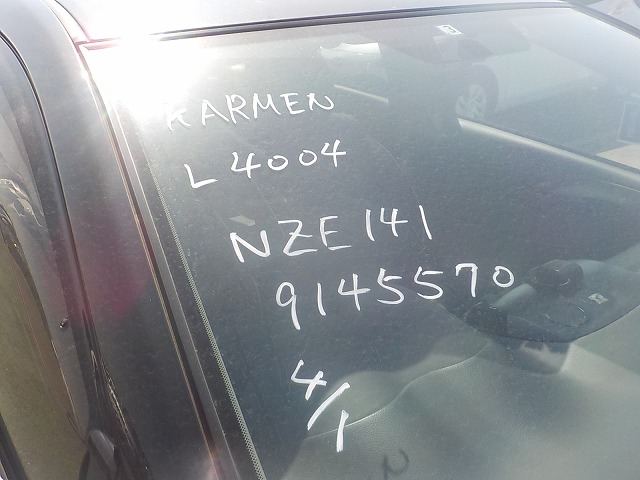 KARMEN
L4004
NZE141
9145570
4/1